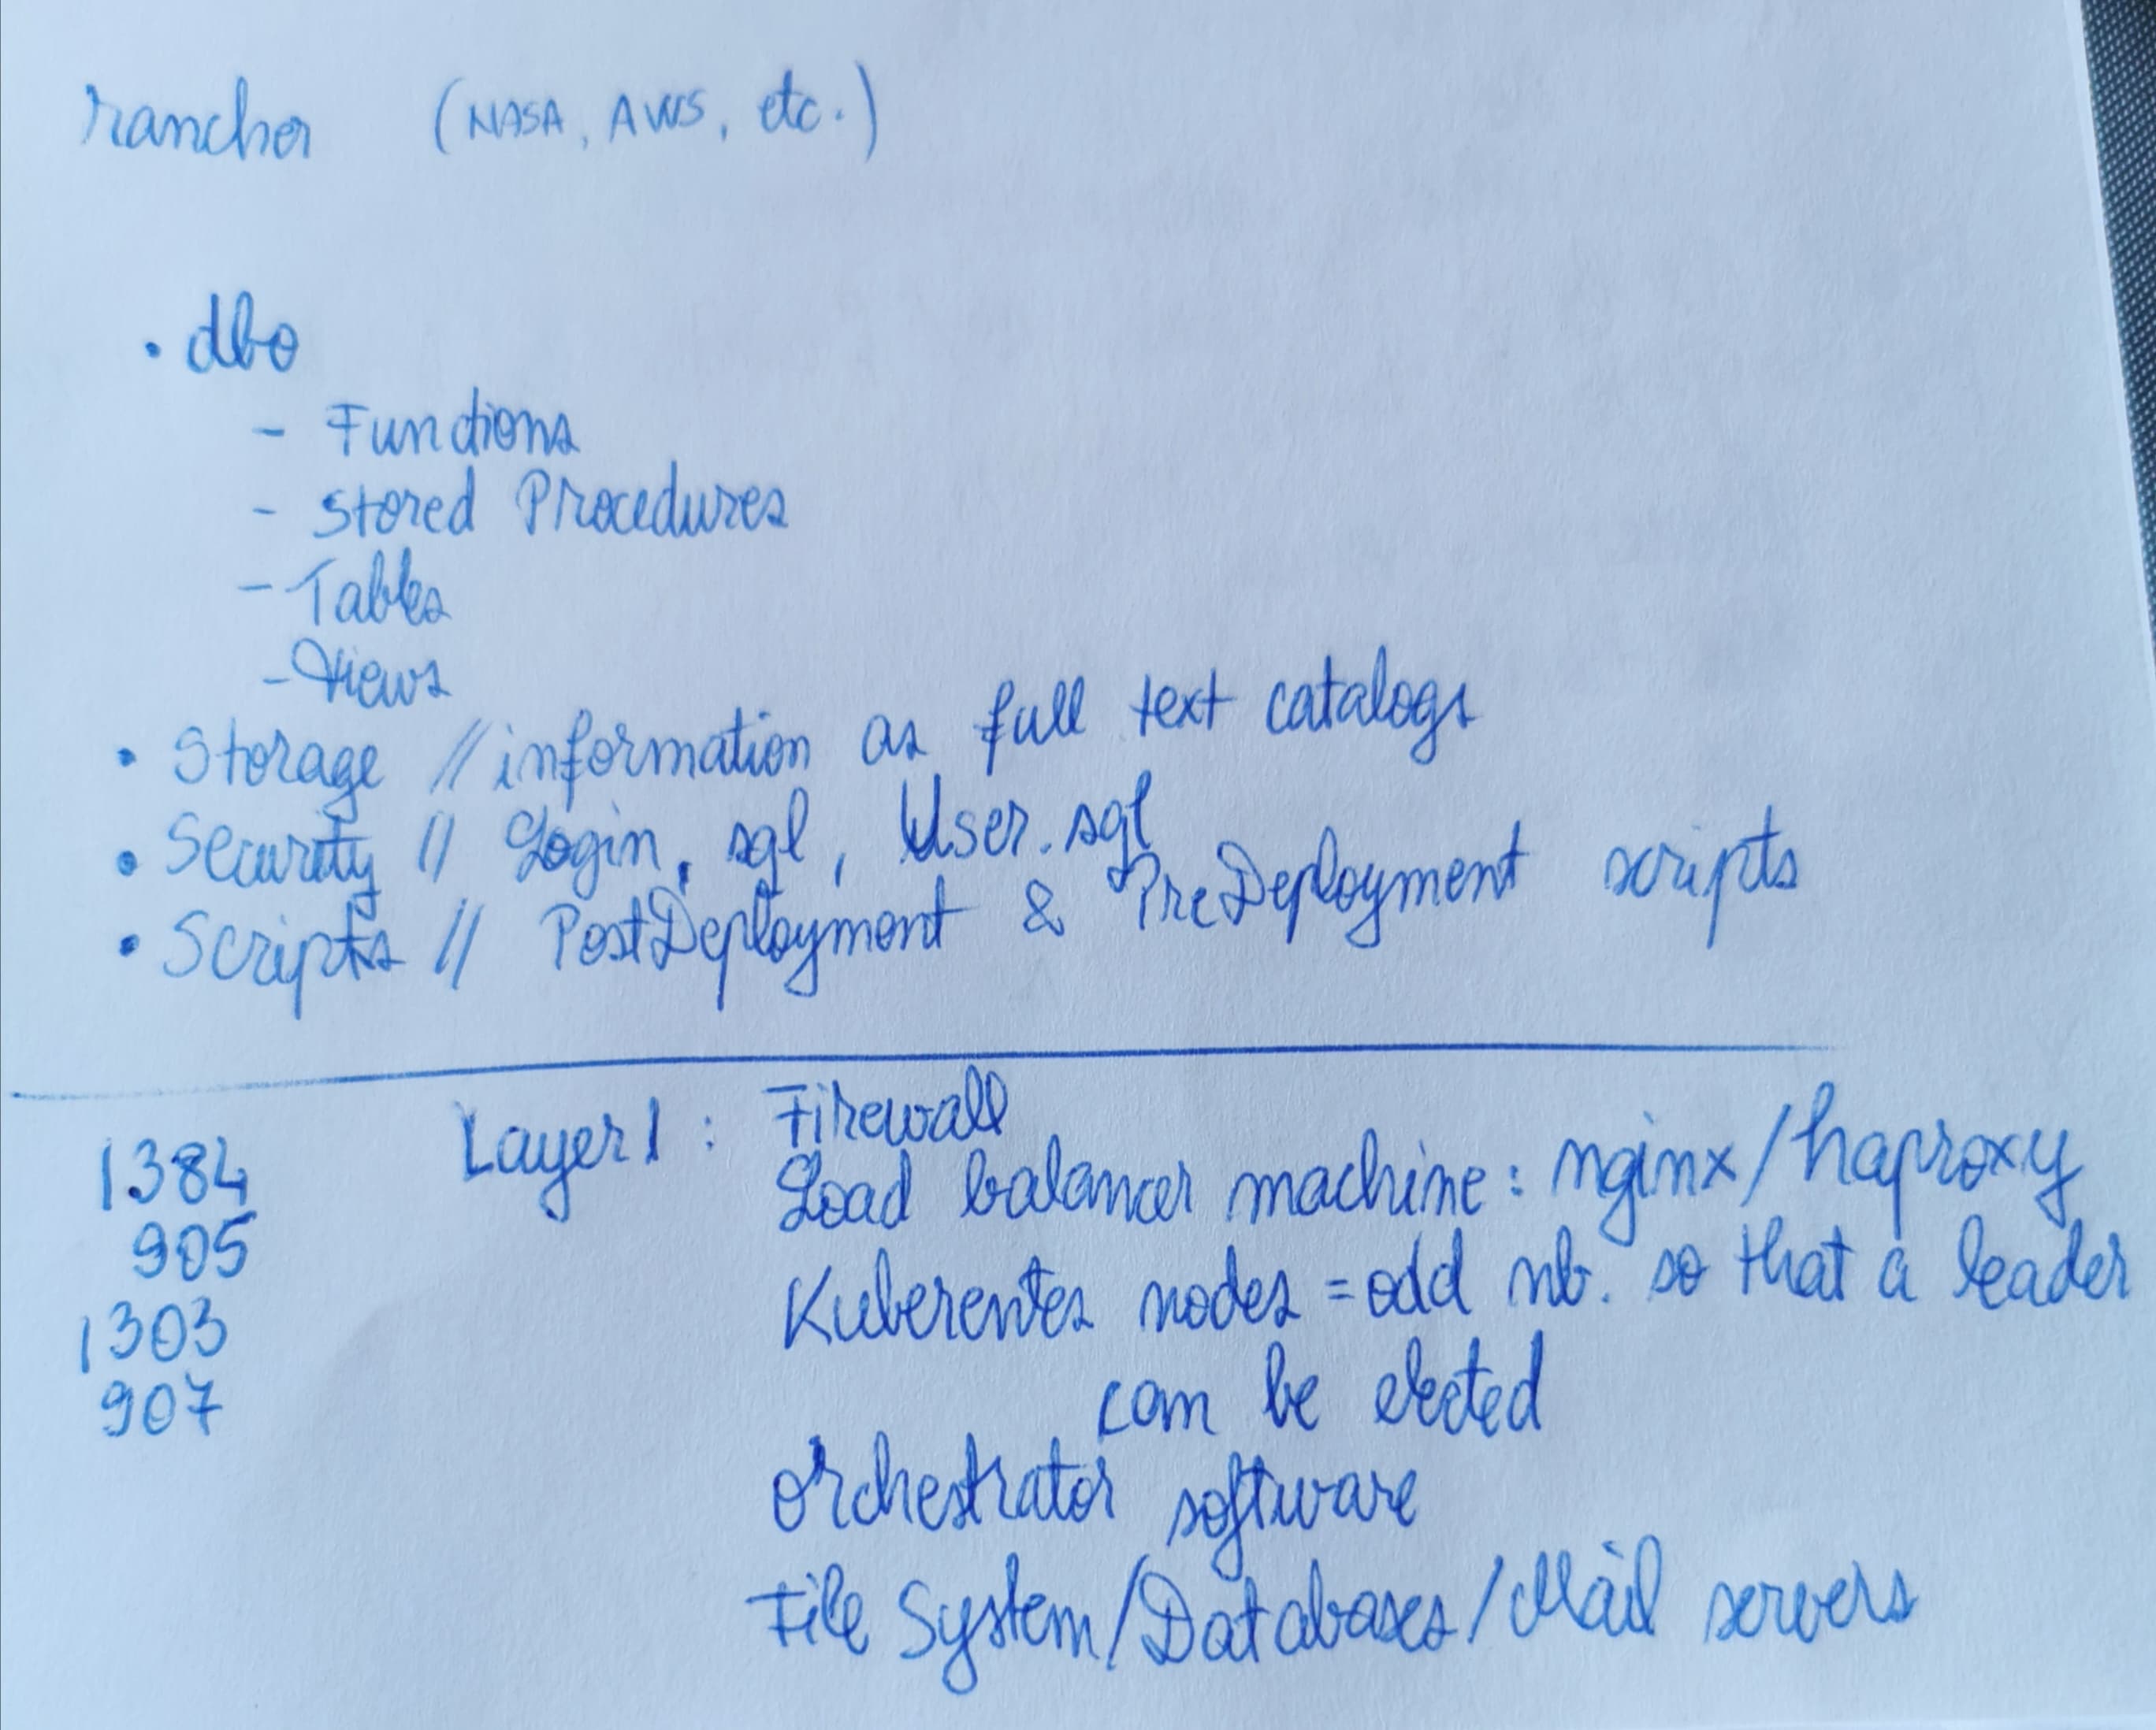 rancher (NASA, AWS, etc.)
• dbo
- Functions
- Stored Procedures
- Tables
- Views
• Storage // information as full text catalogs
• Security // Login.sql, User.sql
• Scripts // PostDeployment & PreDeployment scripts
1384 Layer 1 : Firewall
905 Load balancer machine: nginx/haproxy
1303 Kuberentes nodes = odd nb. so that a leader
907 can be elected
orchestrator software
File System/Databases/Mail servers